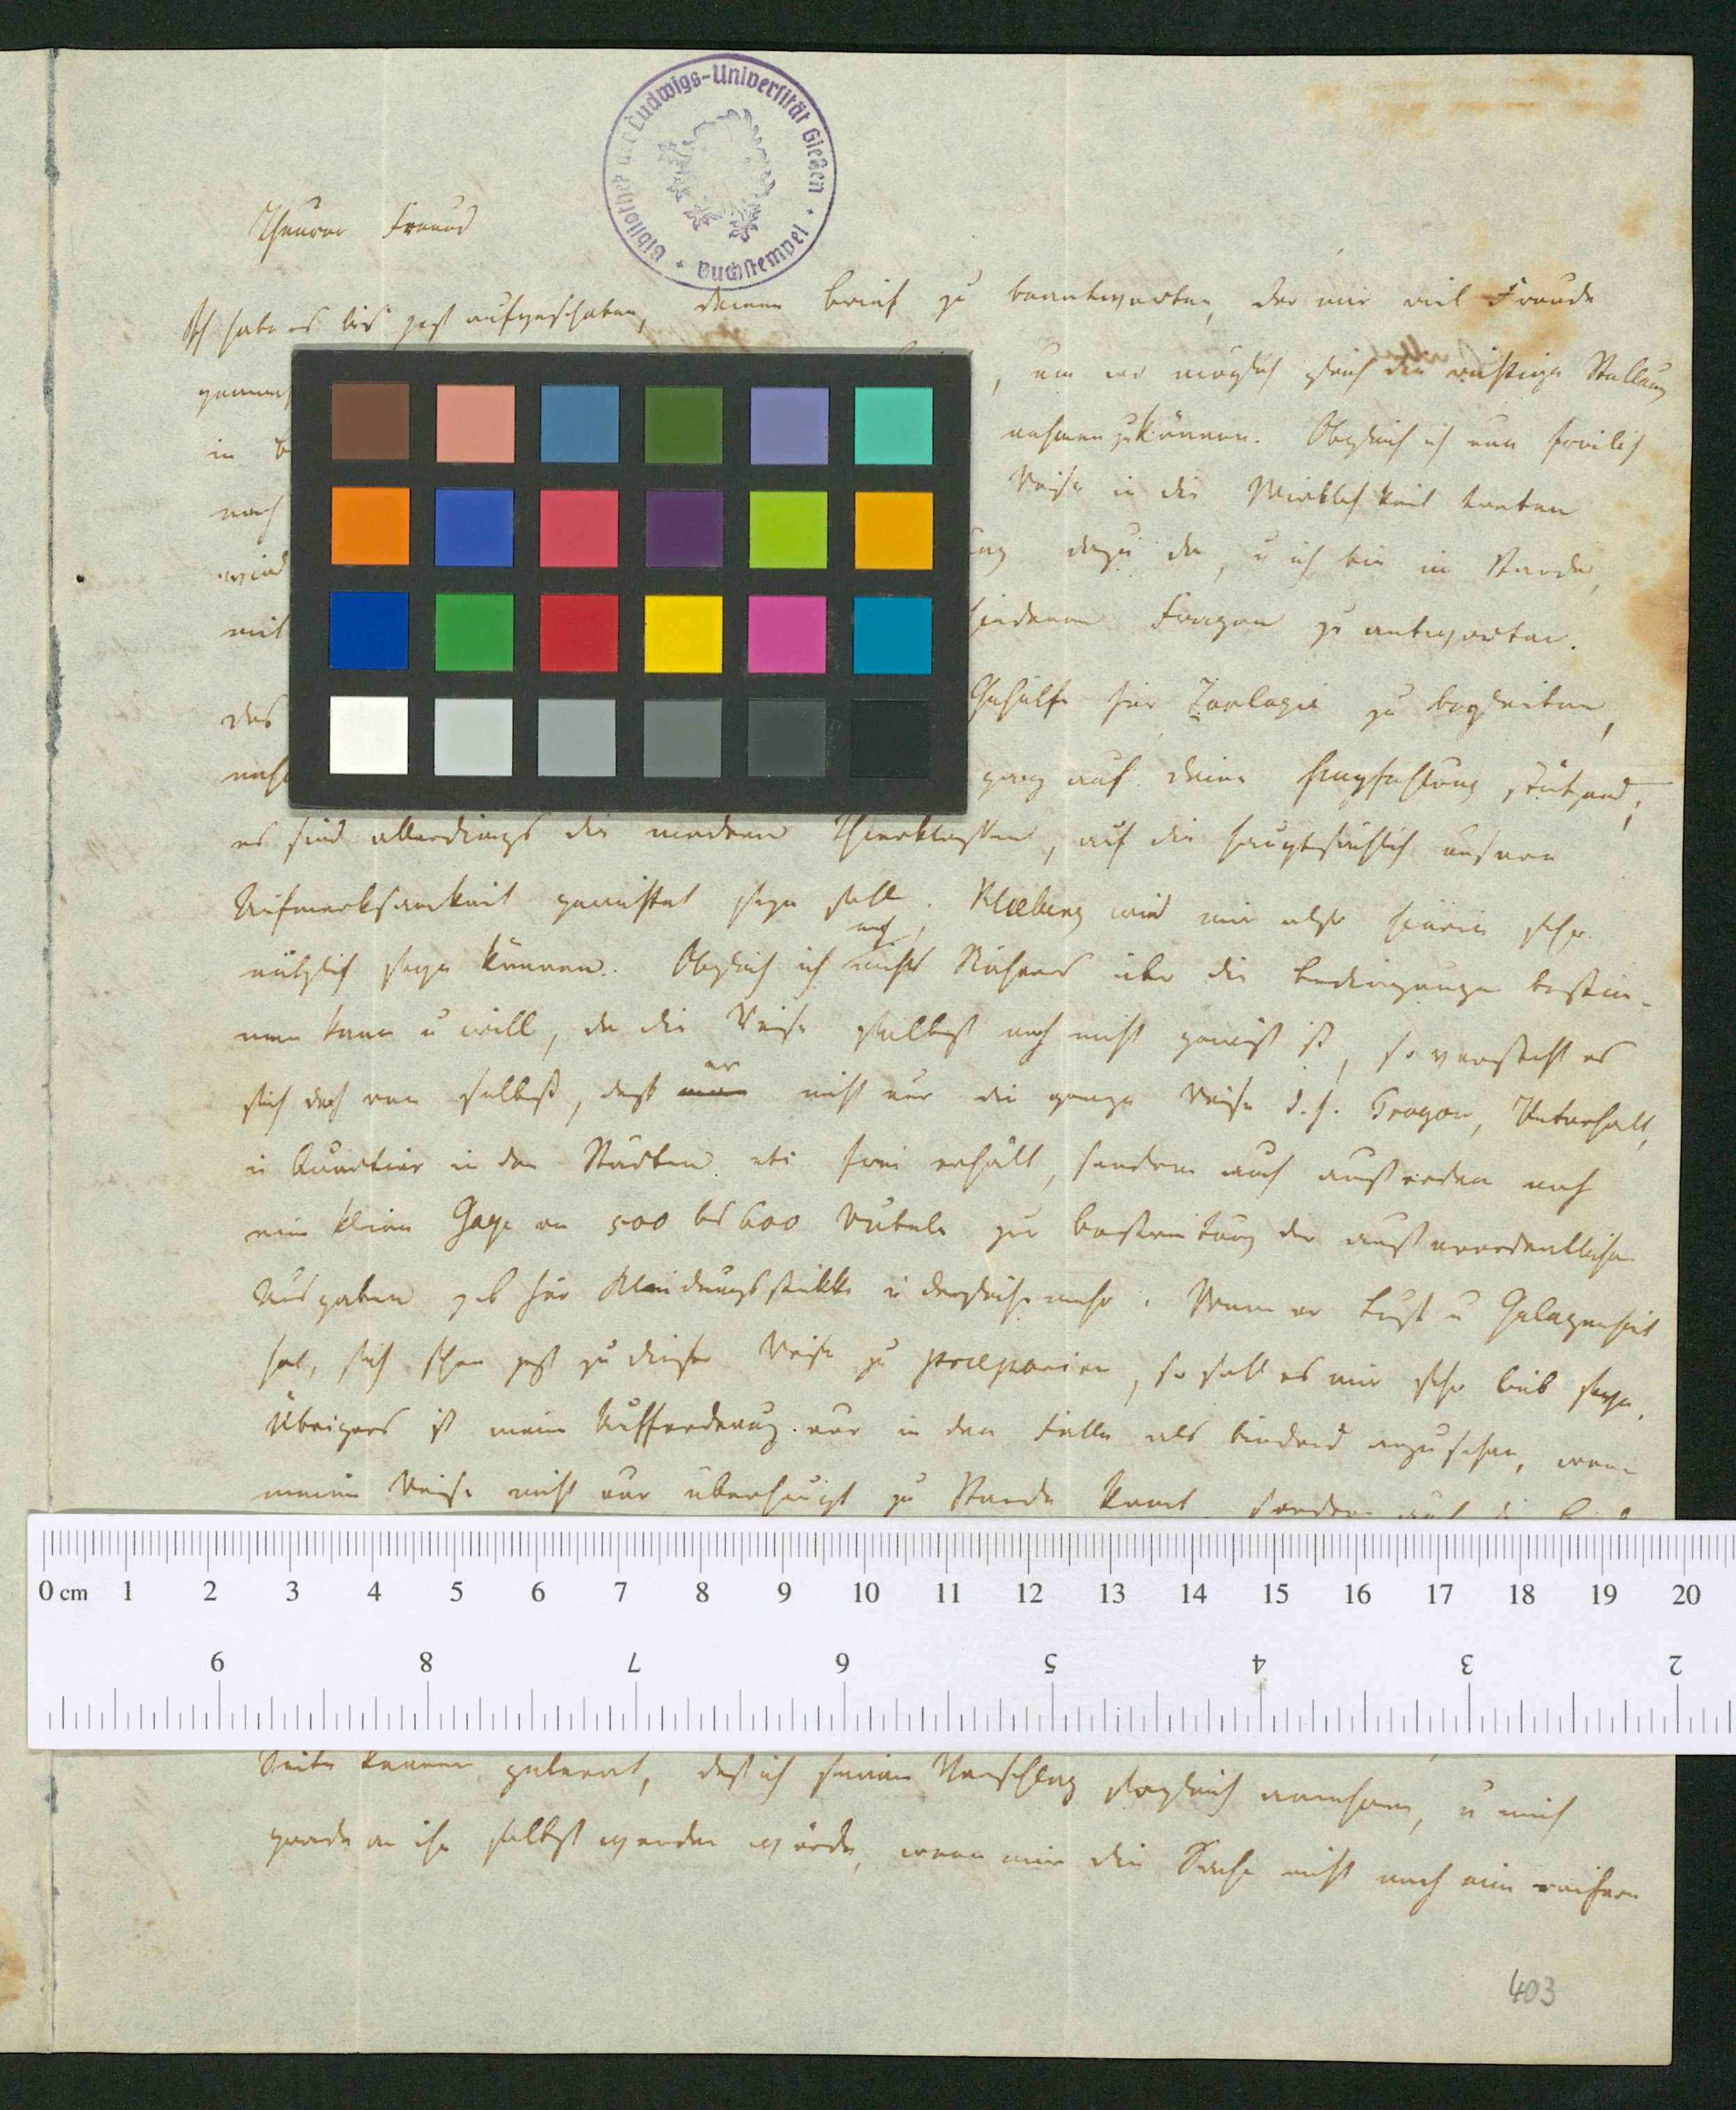 Bibliothek der Ludwigs-Universität Gießen · Buchstempel ·
Theurer Freund
Ich habe es bis jetzt aufgeschoben, deinen Brief zu beantworten, der mir viel Freude
gemach , um wo möglich gleich die richtige Stellung
in B nehmen zu können. Obgleich ich nun freilich
noch Reise in die Wirklichkeit treten
wird ung dazu da, u ich bin im Stande,
mit Fragen zu antworten.
das Gehülfe für Zoologie zu begleiten,
nehm ganz auf deine Empfehlung stützend;
es sind allerdings die niederen Thierklassen, auf die hauptsächlich unsere
Aufmerksamkeit gerichtet seyn soll. Kleberg wird mir also hierin sehr
nützlich seyn können. Obgleich ich noch nichts Näheres über die Bedingungen bestim-
men kann u will, da die Reise selbst noch nicht gewiß ist, so versteht es
sich doch von selbst, daß er nicht nur die ganze Reise d. h. Progon, Unterhalt,
u Quartier in den Städten etc frei erhält, sondern auch außerdem noch
eine kleine Gage von 500 bis 600 Rubeln zur Bestreitung der außerordentlichen
Ausgaben z B für Kleidungsstükke u dergleichen mehr. Wenn er Lust u Gelegenheit
hat, sich schon jetzt zu dieser Reise zu præpariren, so soll es mir sehr lieb seyn.
Übrigens ist meine Aufforderung nur in dem Falle als bindend anzusehen, wenn
meine Reise nicht nur überhaupt zu Stande kommt, sondern auch die
0 cm 1 2 3 4 5 6 7 8 9 10 11 12 13 14 15 16 17 18 19 20
2 3 4 5 6 7 8 9
Seite kennen gelernt, daß ich seinen Vorschlag sogleich annehmen, u mich
gerade an ihn selbst wenden würde, wenn mir die Sache nicht noch einer reiferen
403